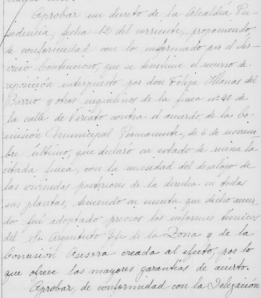 Aprobar un decreto de la Alcaldía Pre-
sidencia, fecha 12 del corriente, proponiendo,
de conformidad con lo informado por el Ser-
vicio Contencioso, que se desestime el recurso de
reposición interpuesto por don Felipe Llanas del
Barrio y otros inquilinos de la finca nº 40 de
la calle de Viriato contra el acuerdo de la Co-
misión Municipal Permanente, de 6 de noviem-
bre último, que declaró en estado de ruina la
citada finca, con la necesidad del desalojo de
las viviendas posteriores de la derecha en todas
sus plantas, teniendo en cuenta que dicho acuer-
do fué adoptado previos los informes técnicos
del Sr. Arquitecto Jefe de la Zona y de la
Comisión Asesora creada al efecto, por lo
que ofrece las mayores garantías de acierto.
Aprobar, de conformidad con la Delegación